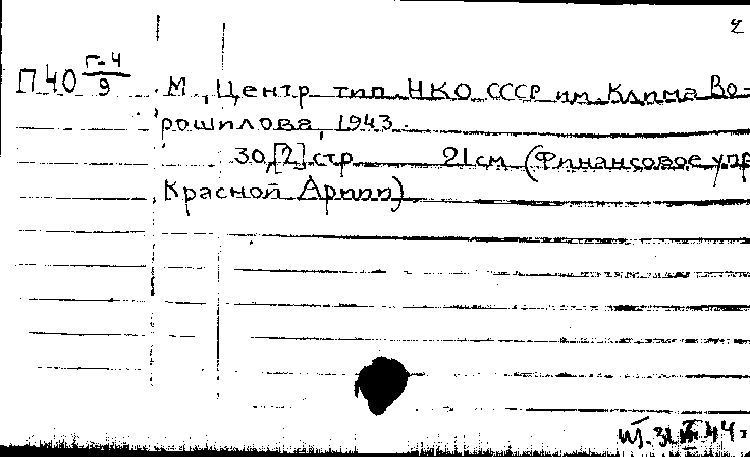 2
П40 Г-4/9 М., Центр тип НКО СССР им. Клима Во-
рошилова, 1943.
30,[2] стр 21 см (Финансовое упр
Красной Армии)
44г